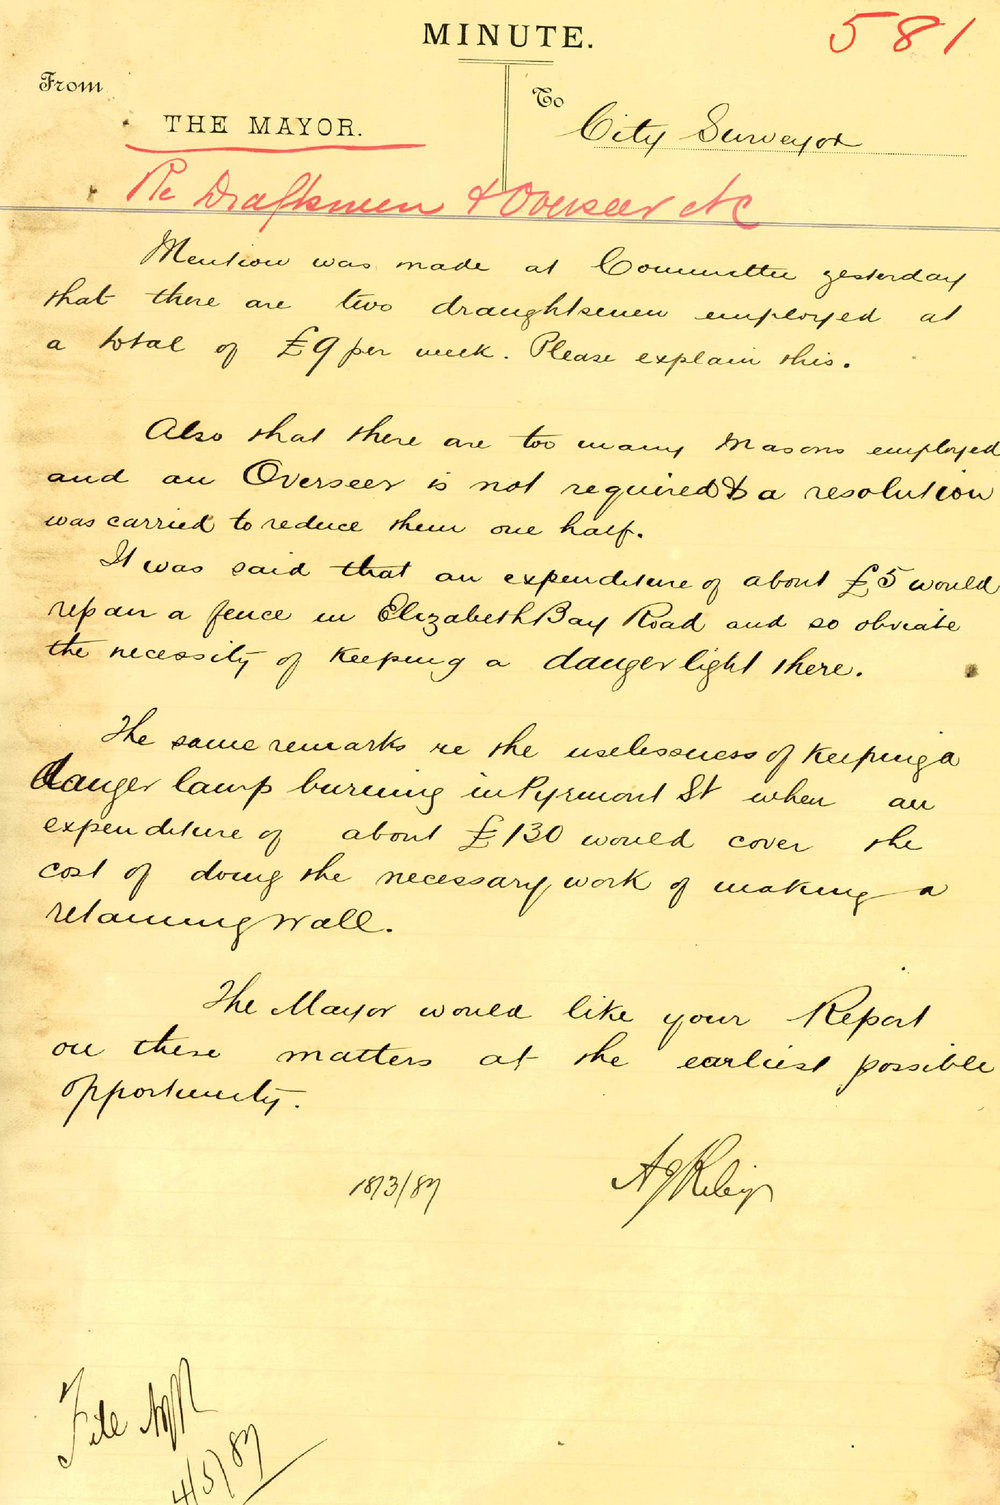 MINUTE.
581
From
THE MAYOR.
To
City Surveyor
Re Draftsmen & Overseer etc
Mention was made at Committee yesterday
that there are two draughtsmen employed at
a total of £9 per week. Please explain this.
Also that there are too many Masons employed
and an Overseer is not required & a resolution
was carried to reduce them one half.
It was said that an expenditure of about £5 would
repair a fence in Elizabeth Bay Road and so obviate
the necessity of keeping a danger light there.
The same remarks re the uselessness of keeping a
danger lamp burning in Pyrmont St when an
expenditure of about £130 would cover the
cost of doing the necessary work of making a
retaining wall.
The Mayor would like your Report
on these matters at the earliest possible
opportunity.
18/3/87
AJRiley
File AJR
4/5/87